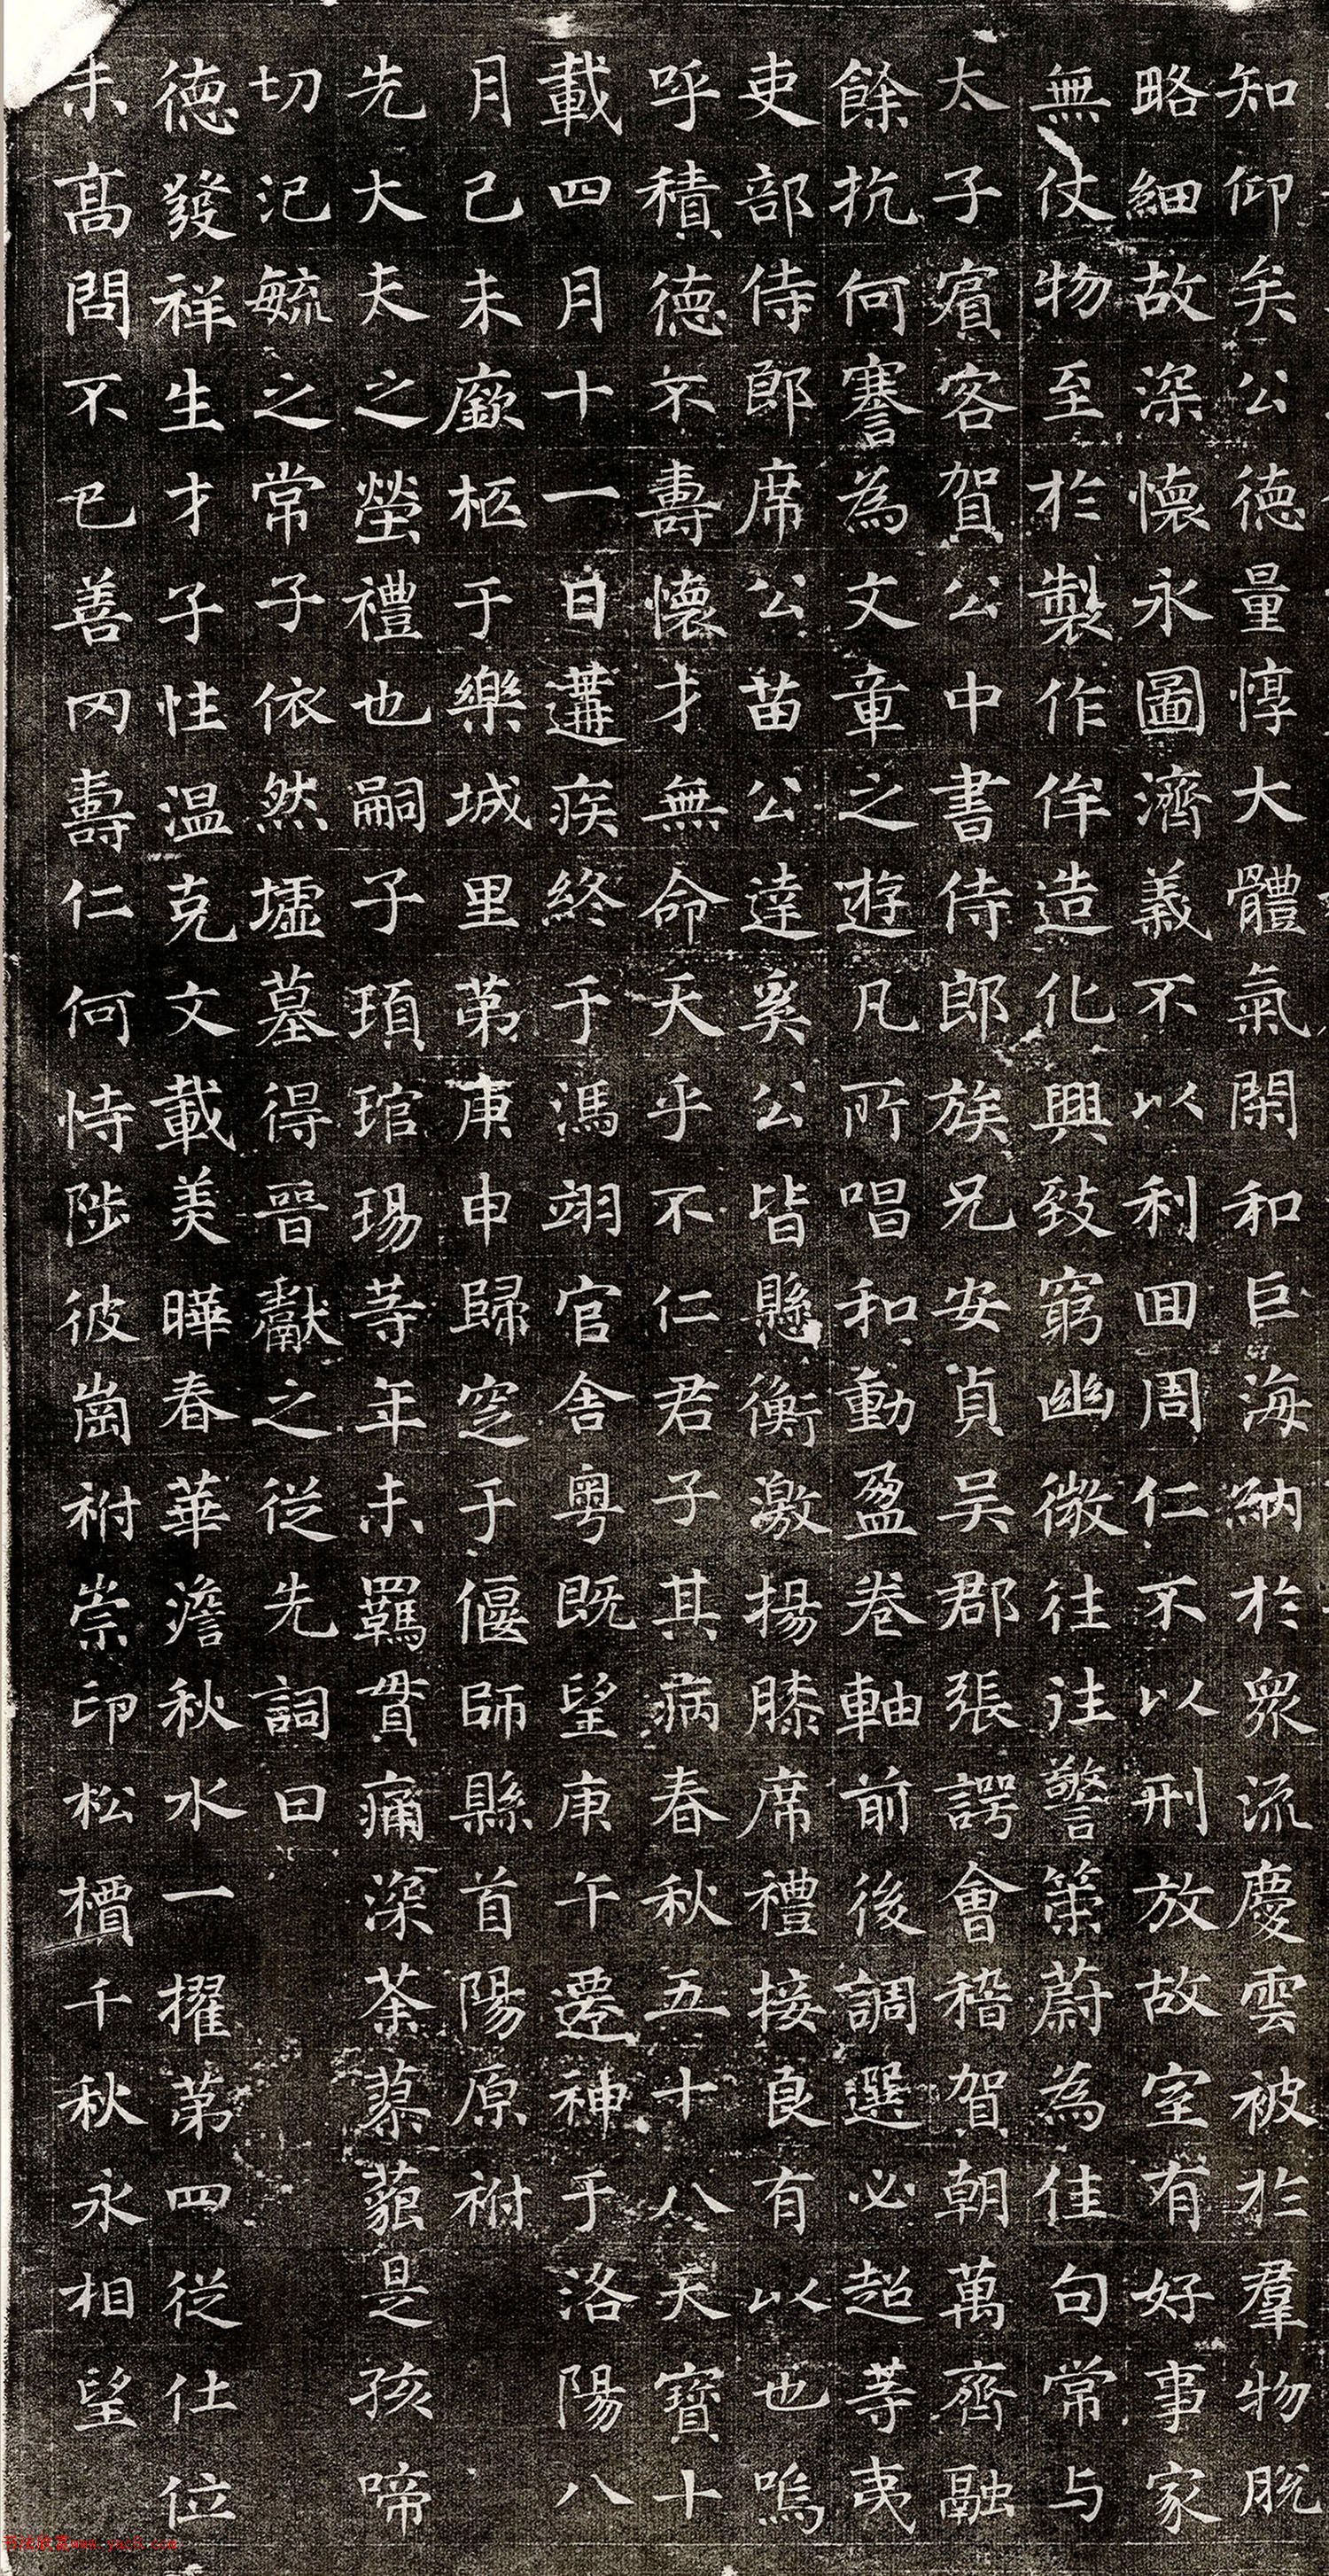 知仰矣公德量惇大體氣閑和巨海納於眾流慶雲被於羣物脫
略細故深懷永圖濟義不以利回周仁不以刑放故室有好事家
無仗物至於製作侔造化興致窮幽微往往警策蔚為佳句常与
太子賓客賀公中書侍郎族兄安貞吳郡張諤會稽賀朝萬齊融
餘抗何謇為文章之遊凡所唱和動盈卷軸前後調選必超等夷
吏部侍郎席公苗公達奚公皆懸衡激揚膝席禮接良有以也嗚
呼積德不壽懷才無命天乎不仁君子其病春秋五十八天寶十
載四月十一日遘疾終于馮翊官舍粵既望庚午遷神于洛陽八
月己未廞柩于樂城里第庚申歸窆于偃師縣首陽原祔
先大夫之塋禮也嗣子頊琯瑒等年未羈貫痛深荼蓼藐是孩啼
切汜毓之常子依然墟墓得晉獻之從先詞曰
德發祥生才子性溫克文載美曄春華澹秋水一擢第四從仕位
未高問不已善罔壽仁何恃陟彼崗祔崇邙松檟千秋永相望
www.yac8.com